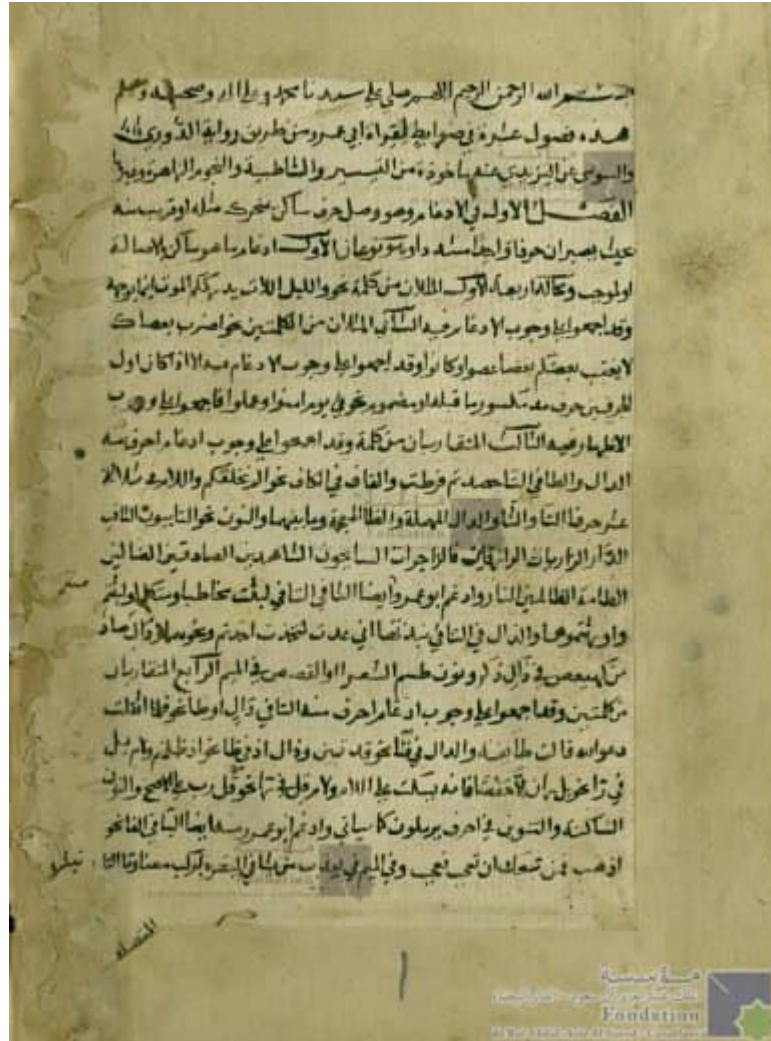 بسم الله الرحمن الرحيم اللهم صلي على سيدنا محمد وعلى اله وصحبه وسلم
هذه فصول عشرة في ضوابط لقراءة ابي عمرو من طريق رواية الدوري
والسوسي عن اليزيدي عنه ماخوذة من التيسير والشاطبية والنجوم الزاهرة وغيرها
الفصل الاول في الادغام وهو وصل حرف ساكن بمتحرك مثله او قريب منه
بحيث يصيران حرفا واحدا مشددا وهو نوعان الاول ادغام ما هو ساكن بالاصالة
الاول المثلان من كلمة نحو والليل اللات يدرككم الموت اينما يوجهه
وقد اجمعوا على وجوب الادغام فيه الثاني المثلان من كلمتين نحو اضرب بعصاك
لا يغتب بعضكم بعضا عصوا وكانوا وقد اجمعوا على وجوب الادغام فيه الا اذا كان اول
الحرفين حرف مد مكسور ما قبله او مضموم نحو في يوم امنوا وعملوا فاجمعوا على وجوب
الاظهار فيه الثالث المتقاربان من كلمة وقد اجمعوا على وجوب ادغام احرف منه
الدال والطا في التا حصدتم فرطت والقاف في الكاف نحو الم نخلقكم واللام في ثلاثة
عشر حرفا التا والثا والدال المهملة والظا المعجمة وما بينهما والنون نحو التايبون الثاقب
الدار الذاريات الرازقين فالزاجرات السايحون الشاهدين الصادقين الضالين
الطامة الظالمين النار وادغم ابو عمرو ايضا الثا في التا في لبثت مخاطبا ومتكلما ولبثتم
واورثتموها والذال في التا في نبذتها اني عذت لتخذت اخذتم ونحوها والدال صاد
من كهيعص في ذال ذكر ونون طسم الشعرا والقصص في الميم الرابع المتقاربان
من كلمتين وقد اجمعوا على وجوب ادغام احرف منه التا في دال او طا نحو فلما اثقلت
دعوا الله قالت طايفة والدال في تا نحو قد تبين وذال اذ في ظا نحو اذ ظلمتم ولام بل
في را نحو بل ران الا حفصا فانه يسكت على اللام ولام قل في را نحو قل رب على الاصح والنون
الساكنة والتنوين في احرف يرملون كما سياتي وادغم ابو عمرو منه ايضا البا في الفا نحو
اذهب فمن تبعك ان تعجب فعجب وفي الميم في يعذب من يشا في البقرة
المتصلة
Fondation